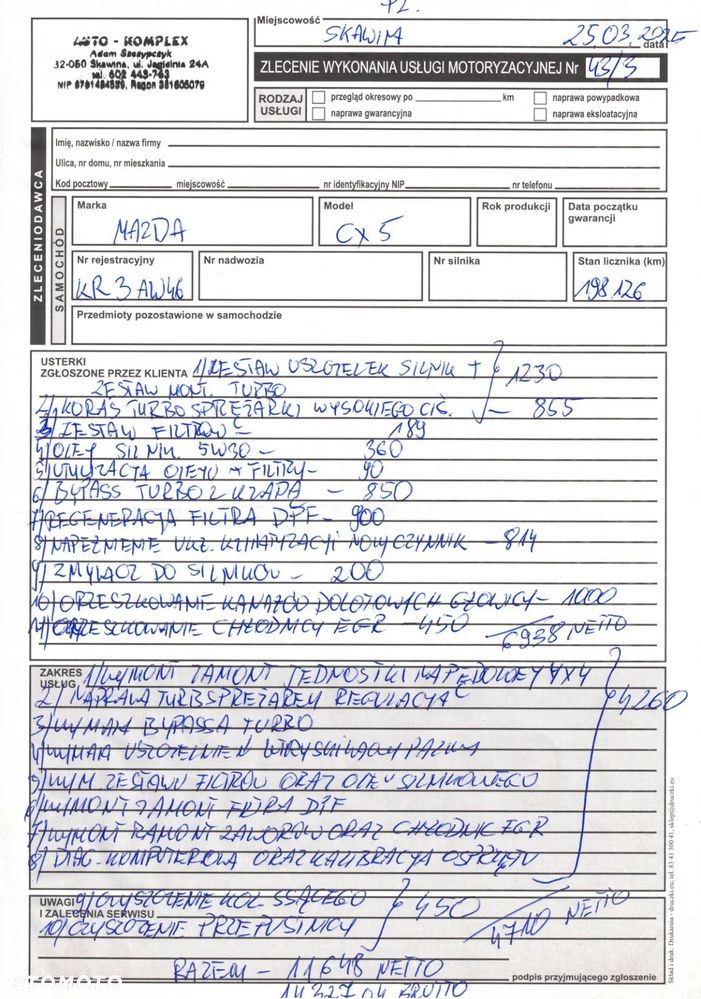 AUTO - KOMPLEX
Adam Szczypczyk
32-050 Skawina, ul. Jagielnia 24A
tel. 602 443-763
Miejscowość
SKAWINA 25.03.2025
data
ZLECENIE WYKONANIA USŁUGI MOTORYZACYJNEJ Nr 43/3
RODZAJ USŁUGI
przegląd okresowy po km
naprawa powypadkowa
naprawa gwarancyjna
naprawa eksloatacyjna
ZLECENIODAWCA
Imię, nazwisko / nazwa firmy
Ulica, nr domu, nr mieszkania
Kod pocztowy miejscowość nr identyfikacyjny NIP nr telefonu
SAMOCHÓD
Marka Model Rok produkcji Data początku gwarancji
MAZDA CX 5
Nr rejestracyjny Nr nadwozia Nr silnika Stan licznika (km)
KR 3AW46 198 126
Przedmioty pozostawione w samochodzie
USTERKI
ZGŁOSZONE PRZEZ KLIENTA 1) ZESTAW USZCZELEK SILNIK + 1230
ZESTAW MONT. TURBO
2) KORAS TURBOSPRĘŻARKI WYSOKIEGO CIŚ. - 855
3) ZESTAW FILTRÓW - 189
4) OLEJ SILNIK. 5W30 - 360
5) UTYLIZACJA OLEJU + FILTRY - 90
6) BYPASS TURBO Z KLAPA - 850
7) REGENERACJA FILTRA DPF - 900
8) NAPEŁNIENIE UKŁ. KLIMATYZACJI NOWY CZYNNIK - 814
9) ZMYWACZ DO SILNIKÓW - 200
10) ORZESZKOWANIE KANAŁÓW DOLOTOWYCH GŁOWICY - 1000
11) ORZESZKOWANIE CHŁODNICY EGR - 450 6938 NETTO
ZAKRES USŁUG
1) WYMONT ZAMONT JEDNOSTKI NAPĘDOWEJ 4x4
2) NAPRAWA TURBSPRĘŻAREK REGULACJA 4260
3) WYMIANA BYPASSA TURBO
4) WYMIANA USZCZELNIEŃ WTRYSKIWACZY PALIWA
5) WYM ZESTAWU FILTRÓW ORAZ OLEJU SILNIKOWEGO
6) WYMONT ZAMONT FILTRA DPF
7) WYMONT ZAMONT ZAWORÓW ORAZ CHŁODNIC EGR
8) DIAG. KOMPUTEROWA ORAZ KALIBRACJA OSPRZĘTU
UWAGI
I ZALECENIA SERWISU
9) CZYSZCZENIE KOL. SSĄCEGO 450
10) CZYSZCZENIE PRZEPUSTNICY 4710 NETTO
RAZEM - 11648 NETTO
podpis przyjmującego zgłoszenie
14327,04 BRUTTO
Skład i druk: Drukarnia - druczki.eu, tel. 83 41 300 41, sklep@druczki.eu
OTOMOTO